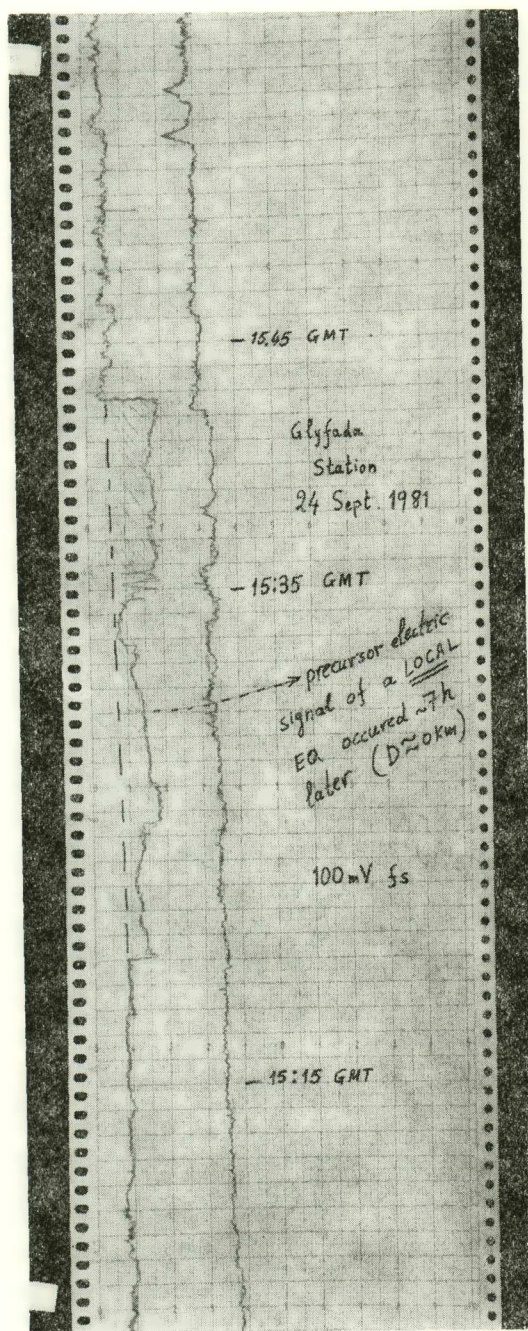 - 15.45 GMT
Glyfada
Station
24 Sept. 1981
- 15:35 GMT
precursor electric
signal of a LOCAL
EQ occured ~7h
later. (D≈0km)
100mV fs
- 15:15 GMT